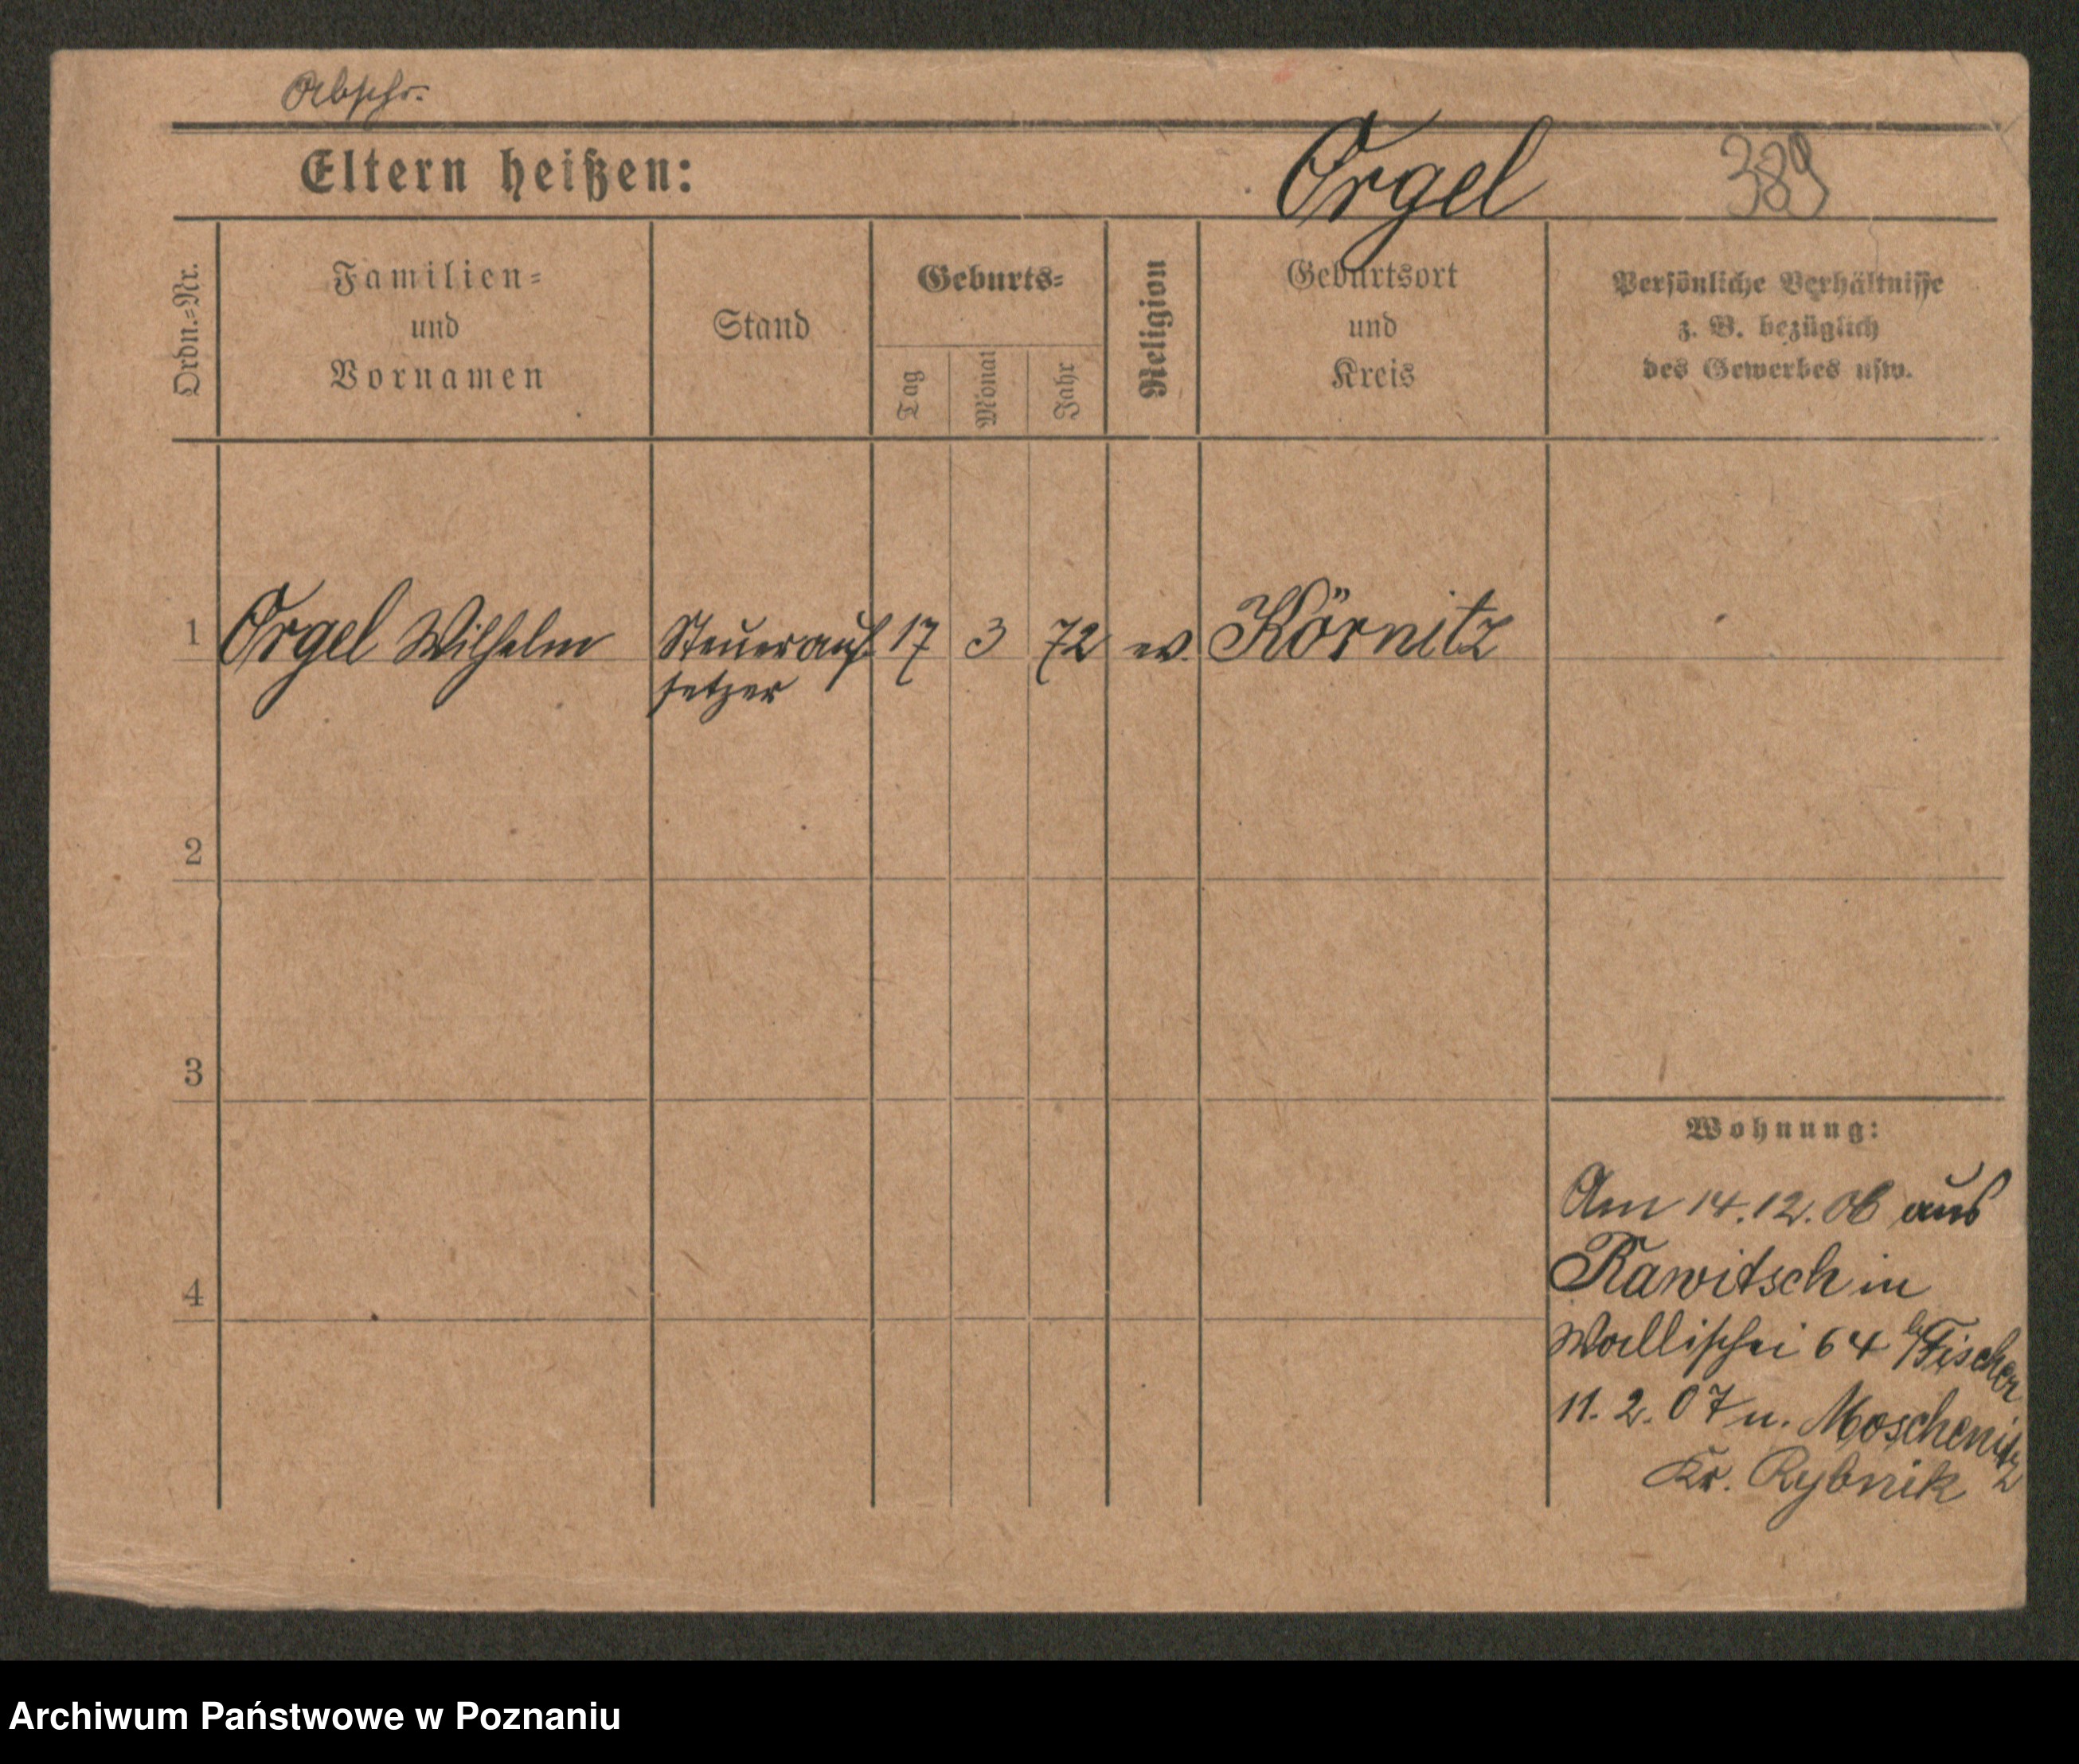 Abschr.
Eltern heißen: Orgel 389
Ordn.-Nr.
Familien-
und
Vornamen
Stand
Geburts-
Tag
Monat
Jahr
Religion
Geburtsort
und
Kreis
Persönliche Verhältnisse
z. B. bezüglich
des Gewerbes usw.
1 Orgel Wilhelm Steuerauf 17 3 72 ev. Körnitz
setzer
2
3
4
Wohnung:
Am 14.12.06 aus
Rawitsch in
Wallischei 64 b/Fischer
11. 2. 07 n. Moschenitz
Kr. Rybnik
Archiwum Państwowe w Poznaniu